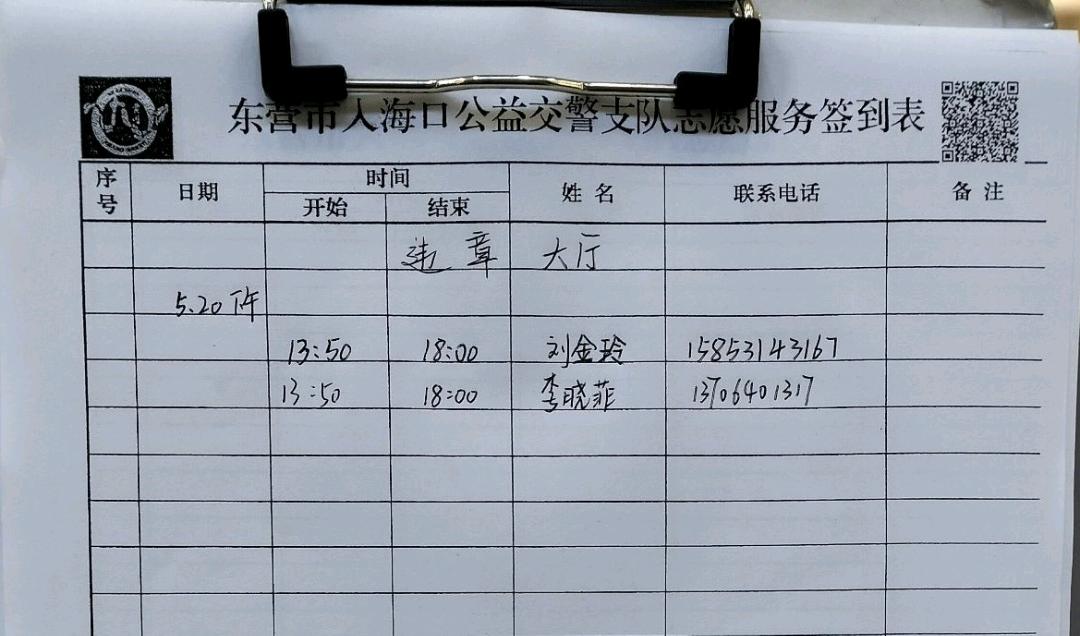 东营市入海口公益交警支队志愿服务签到表
序号 日期 时间 姓名 联系电话 备注
开始 结束
违章 大厅
5.20下午
13:50 18:00 刘金玲 15853143167
13:50 18:00 李晓菲 13706401317